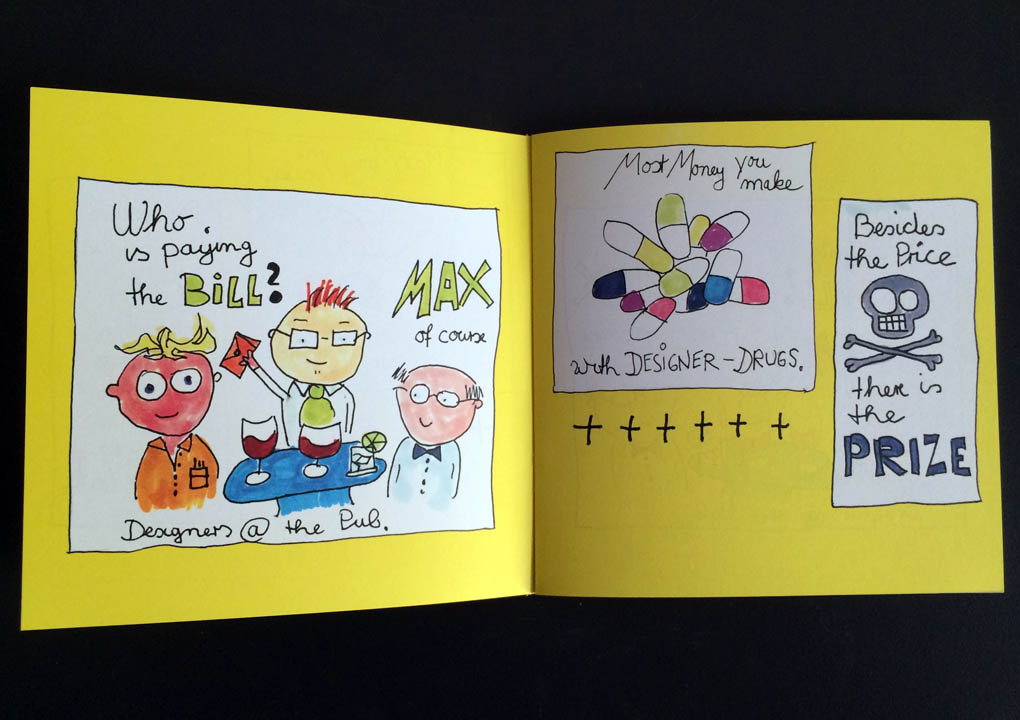 Who
is paying
the BiLL?
MAX
of course
Designers @ the Pub.
Most Money you
make
with DESIGNER-DRUGS.
++++++
Besides
the Price
there is
the
PRIZE